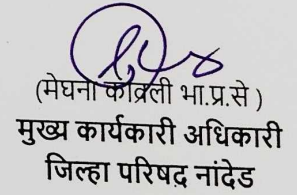 (मेघना कावली भा.प्र.से )
मुख्य कार्यकारी अधिकारी
जिल्हा परिषद नांदेड